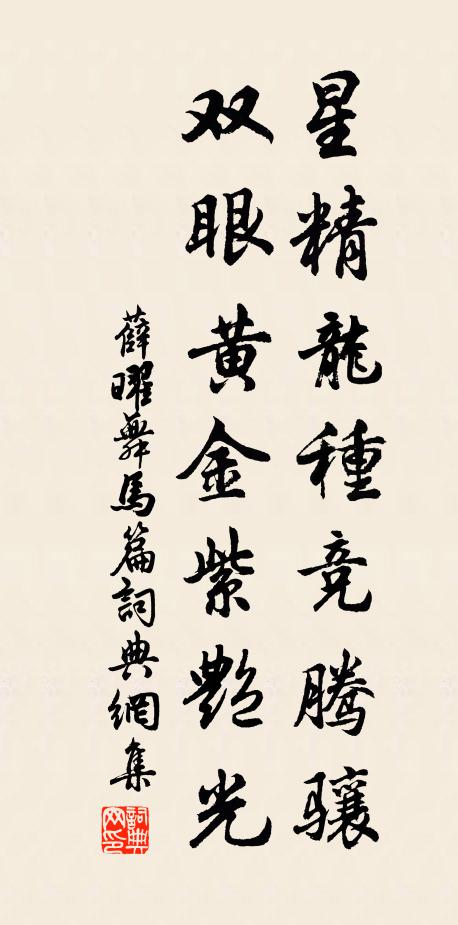 星精龍種竞腾骧
双眼黄金紫艷光
薛曜舞馬篇詞典網集
詞典網印